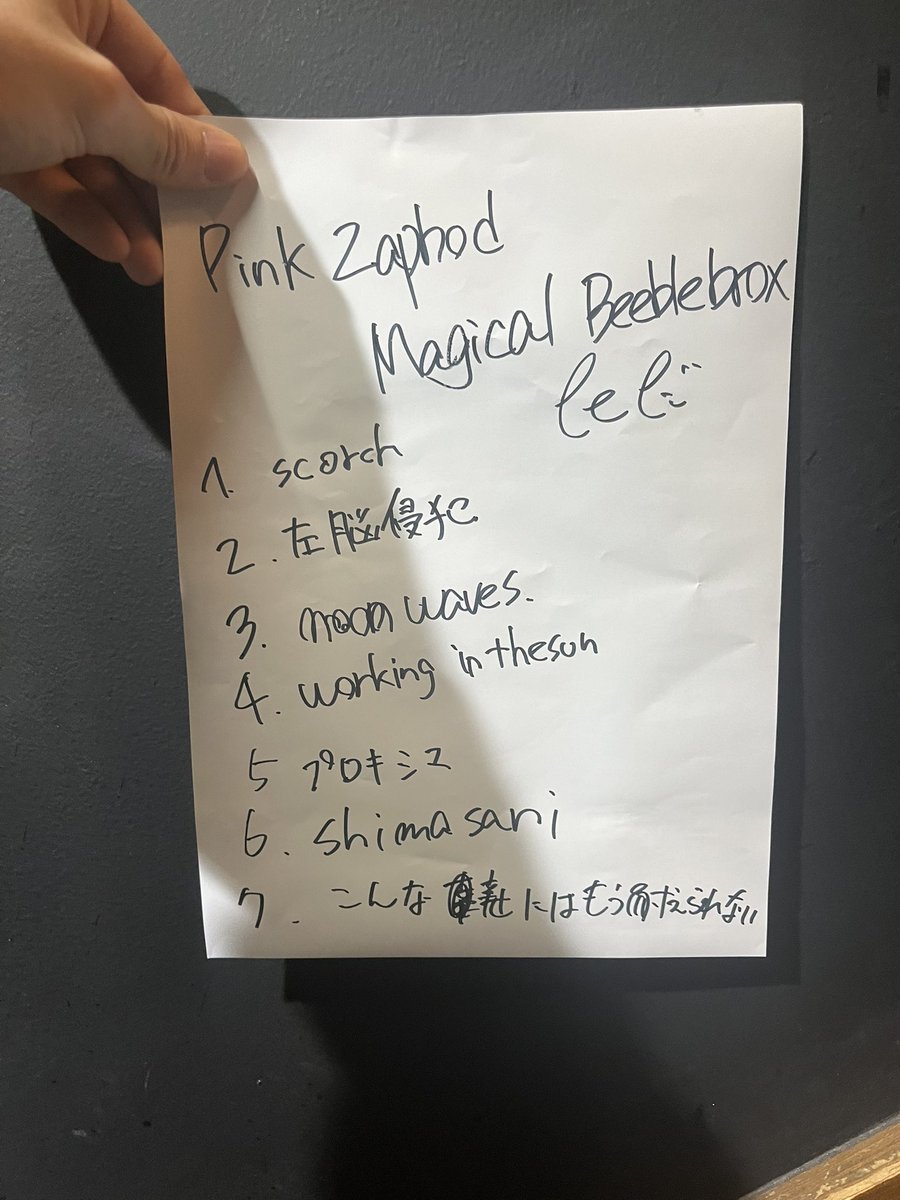 Pink Zaphod
Magical Beeblebrox
1. scorch
2. 左脳侵犯
3. moon waves.
4. working in the sun
5 プロキシマ
6. shimasani
7. こんな にはもう耐えられない